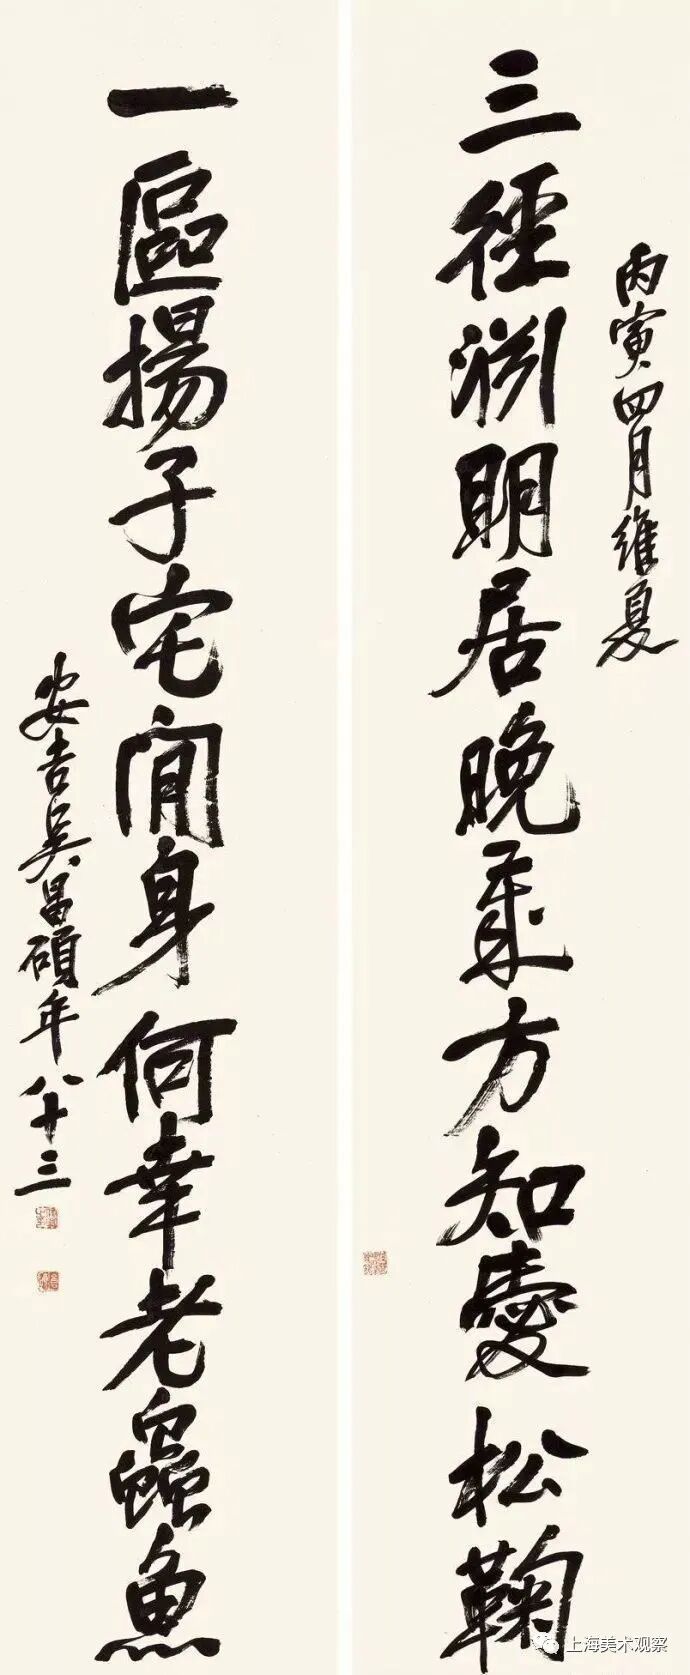 丙寅四月維夏
三徑淵明居晚歲方知愛松鞠
一區揚子宅閒身何幸老蟲魚
安吉吳昌碩年八十三
上海美术观察